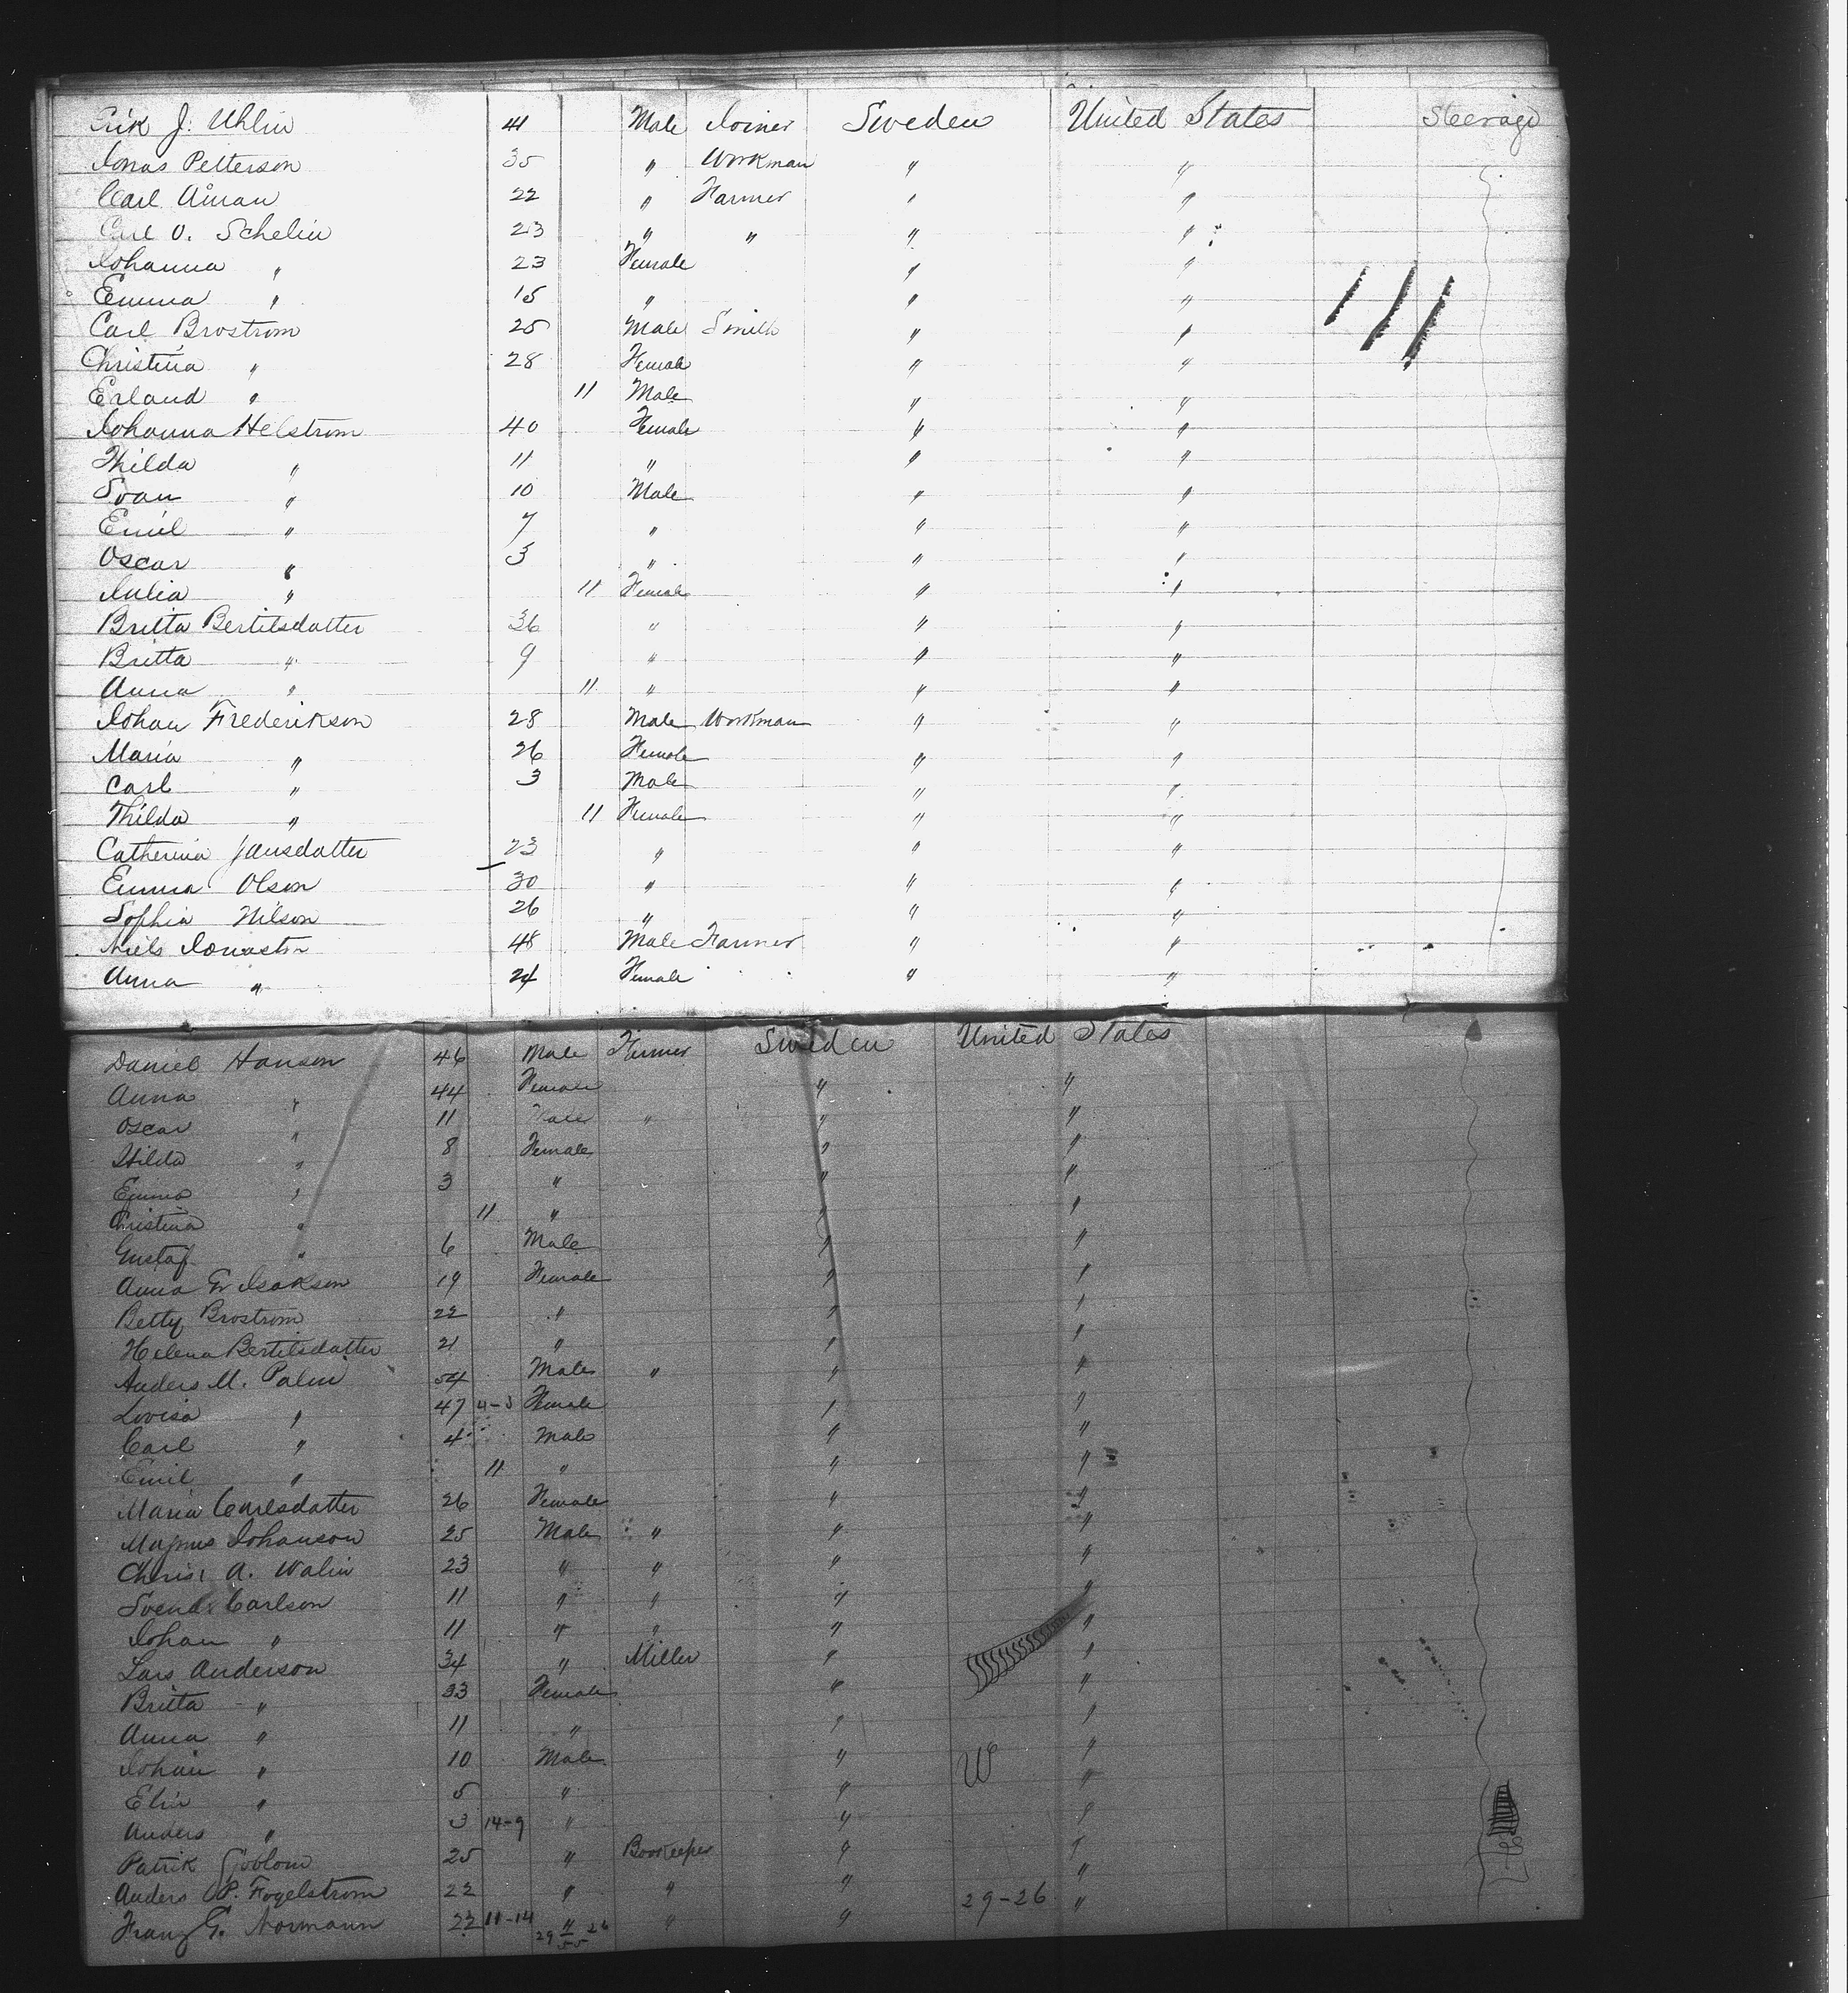 Erik J. Uhlin 41 Male Joiner Sweden United States Steerage
Jonas Petterson 35 " Workman " "
Carl Åman 22 " Farmer " "
Carl O. Schelin 23 " " " "
Johanna " 23 Female " "
Emma " 15 " " "
Carl Brostrom 25 Male Smith " "
Christina " 28 Female " "
Erland " 11 Male " "
Johanna Helstrom 40 Female " "
Thilda " 11 " " "
Svan " 10 Male " "
Emil " 7 " " "
Oscar " 3 " " "
Julia " 11 Female " "
Britta Bertilsdatter 36 " " "
Britta " 9 " " "
Anna " 11 " " "
Johan Frederikson 28 Male Workman " "
Maria " 26 Female " "
Carl " 3 Male " "
Thilda " 11 Female " "
Catherina Jansdatter 23 " " "
Emma Olson 30 " " "
Sophia Nilson 26 " " "
Niels 48 Male Farmer " "
Anna " 24 Female " "
Daniel Hanson 46 Male Farmer Sweden United States
Anna " 44 Female " "
Oscar " 11 Male " " "
Hilda " 8 Female " "
Emma " 3 " " "
Christina " 11 " " "
Gustaf " 6 Male " "
Anna G Isakson 19 Female " "
Betty Brostrom 22 " " "
Helena Bertilsdatter 21 " " "
Anders M. Palin 54 Male " " "
Lovisa " 47 4-3 Female " "
Carl " 4 Male " "
Emil " 11 " " "
Maria Carlsdatter 26 Female " "
Magnus Johanson 25 Male " " "
Christ A. Walin 23 " " " "
Svend Carlson 11 " " " "
Johan " 11 " " " "
Lars Anderson 34 " Miller " "
Britta " 33 Female " "
Anna " 11 " " "
Johan " 10 Male " W "
Elin " 5 " " "
Anders " 3 14-9 " " "
Patrik Sjoblom 25 " Bookeeper " "
Anders P. Fogelstrom 22 " " " 29-26 "
Franz G. Normann 22 11-14 " " "
29 26
55